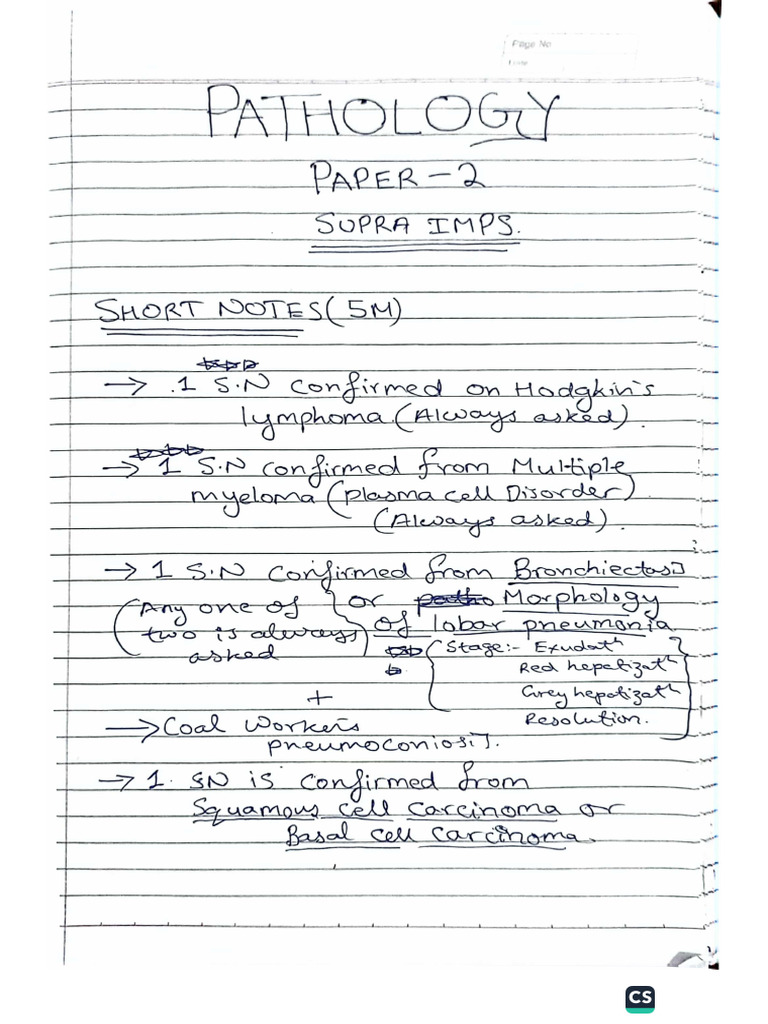 Page No
PATHOLOGY
PAPER-2
SUPRA IMPS.
SHORT NOTES (5M)
→ .1 S.N confirmed on Hodgkin's
lymphoma (Always asked).
→ 1 S.N confirmed from Multiple
myeloma (Plasma cell Disorder)
(Always asked).
→ 1 S.N confirmed from Bronchiectas]
(Any one of
two is always
asked)
or Morphology
of lobar pneumonia
(Stage:- Exudatn
Red hepatizatn
Grey hepatizatn
Resolution.
+
→ Coal Worker's
pneumoconiosi].
→ 1. SN is confirmed from
Squamous cell carcinoma or
Basal cell carcinoma.
CS